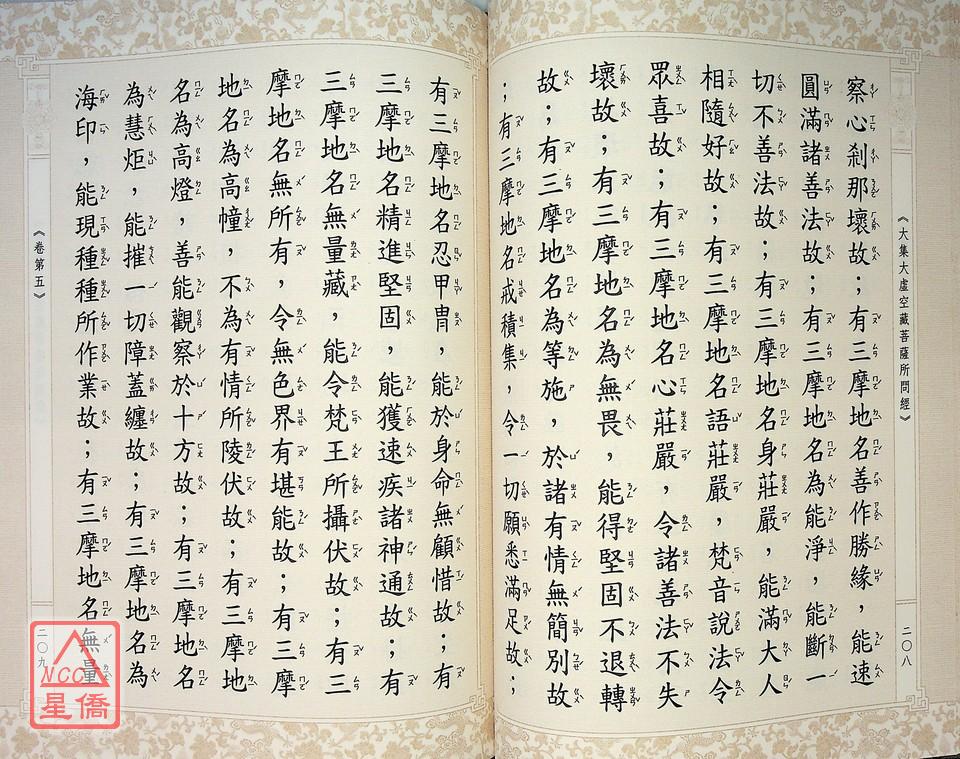 《大集大虛空藏菩薩所問經》
二〇八
察心剎那壞故；有三摩地名善作勝緣，能速
圓滿諸善法故；有三摩地名為能淨，能斷一
切不善法故；有三摩地名身莊嚴，能滿大人
相隨好故；有三摩地名語莊嚴，梵音說法令
眾喜故；有三摩地名心莊嚴，令諸善法不失
壞故；有三摩地名為無畏，能得堅固不退轉
故；有三摩地名為等施，於諸有情無簡別故
；有三摩地名戒積集，令一切願悉滿足故；
有三摩地名忍甲冑，能於身命無顧惜故；有
三摩地名精進堅固，能獲速疾諸神通故；有
三摩地名無量藏，能令梵王所攝伏故；有三
摩地名無所有，令無色界有堪能故；有三摩
地名為高幢，不為有情所陵伏故；有三摩地
名為高燈，善能觀察於十方故；有三摩地名
為慧炬，能摧一切障蓋纏故；有三摩地名為
海印，能現種種所作業故；有三摩地名無量
《卷第五》
二〇九
NCC
星僑